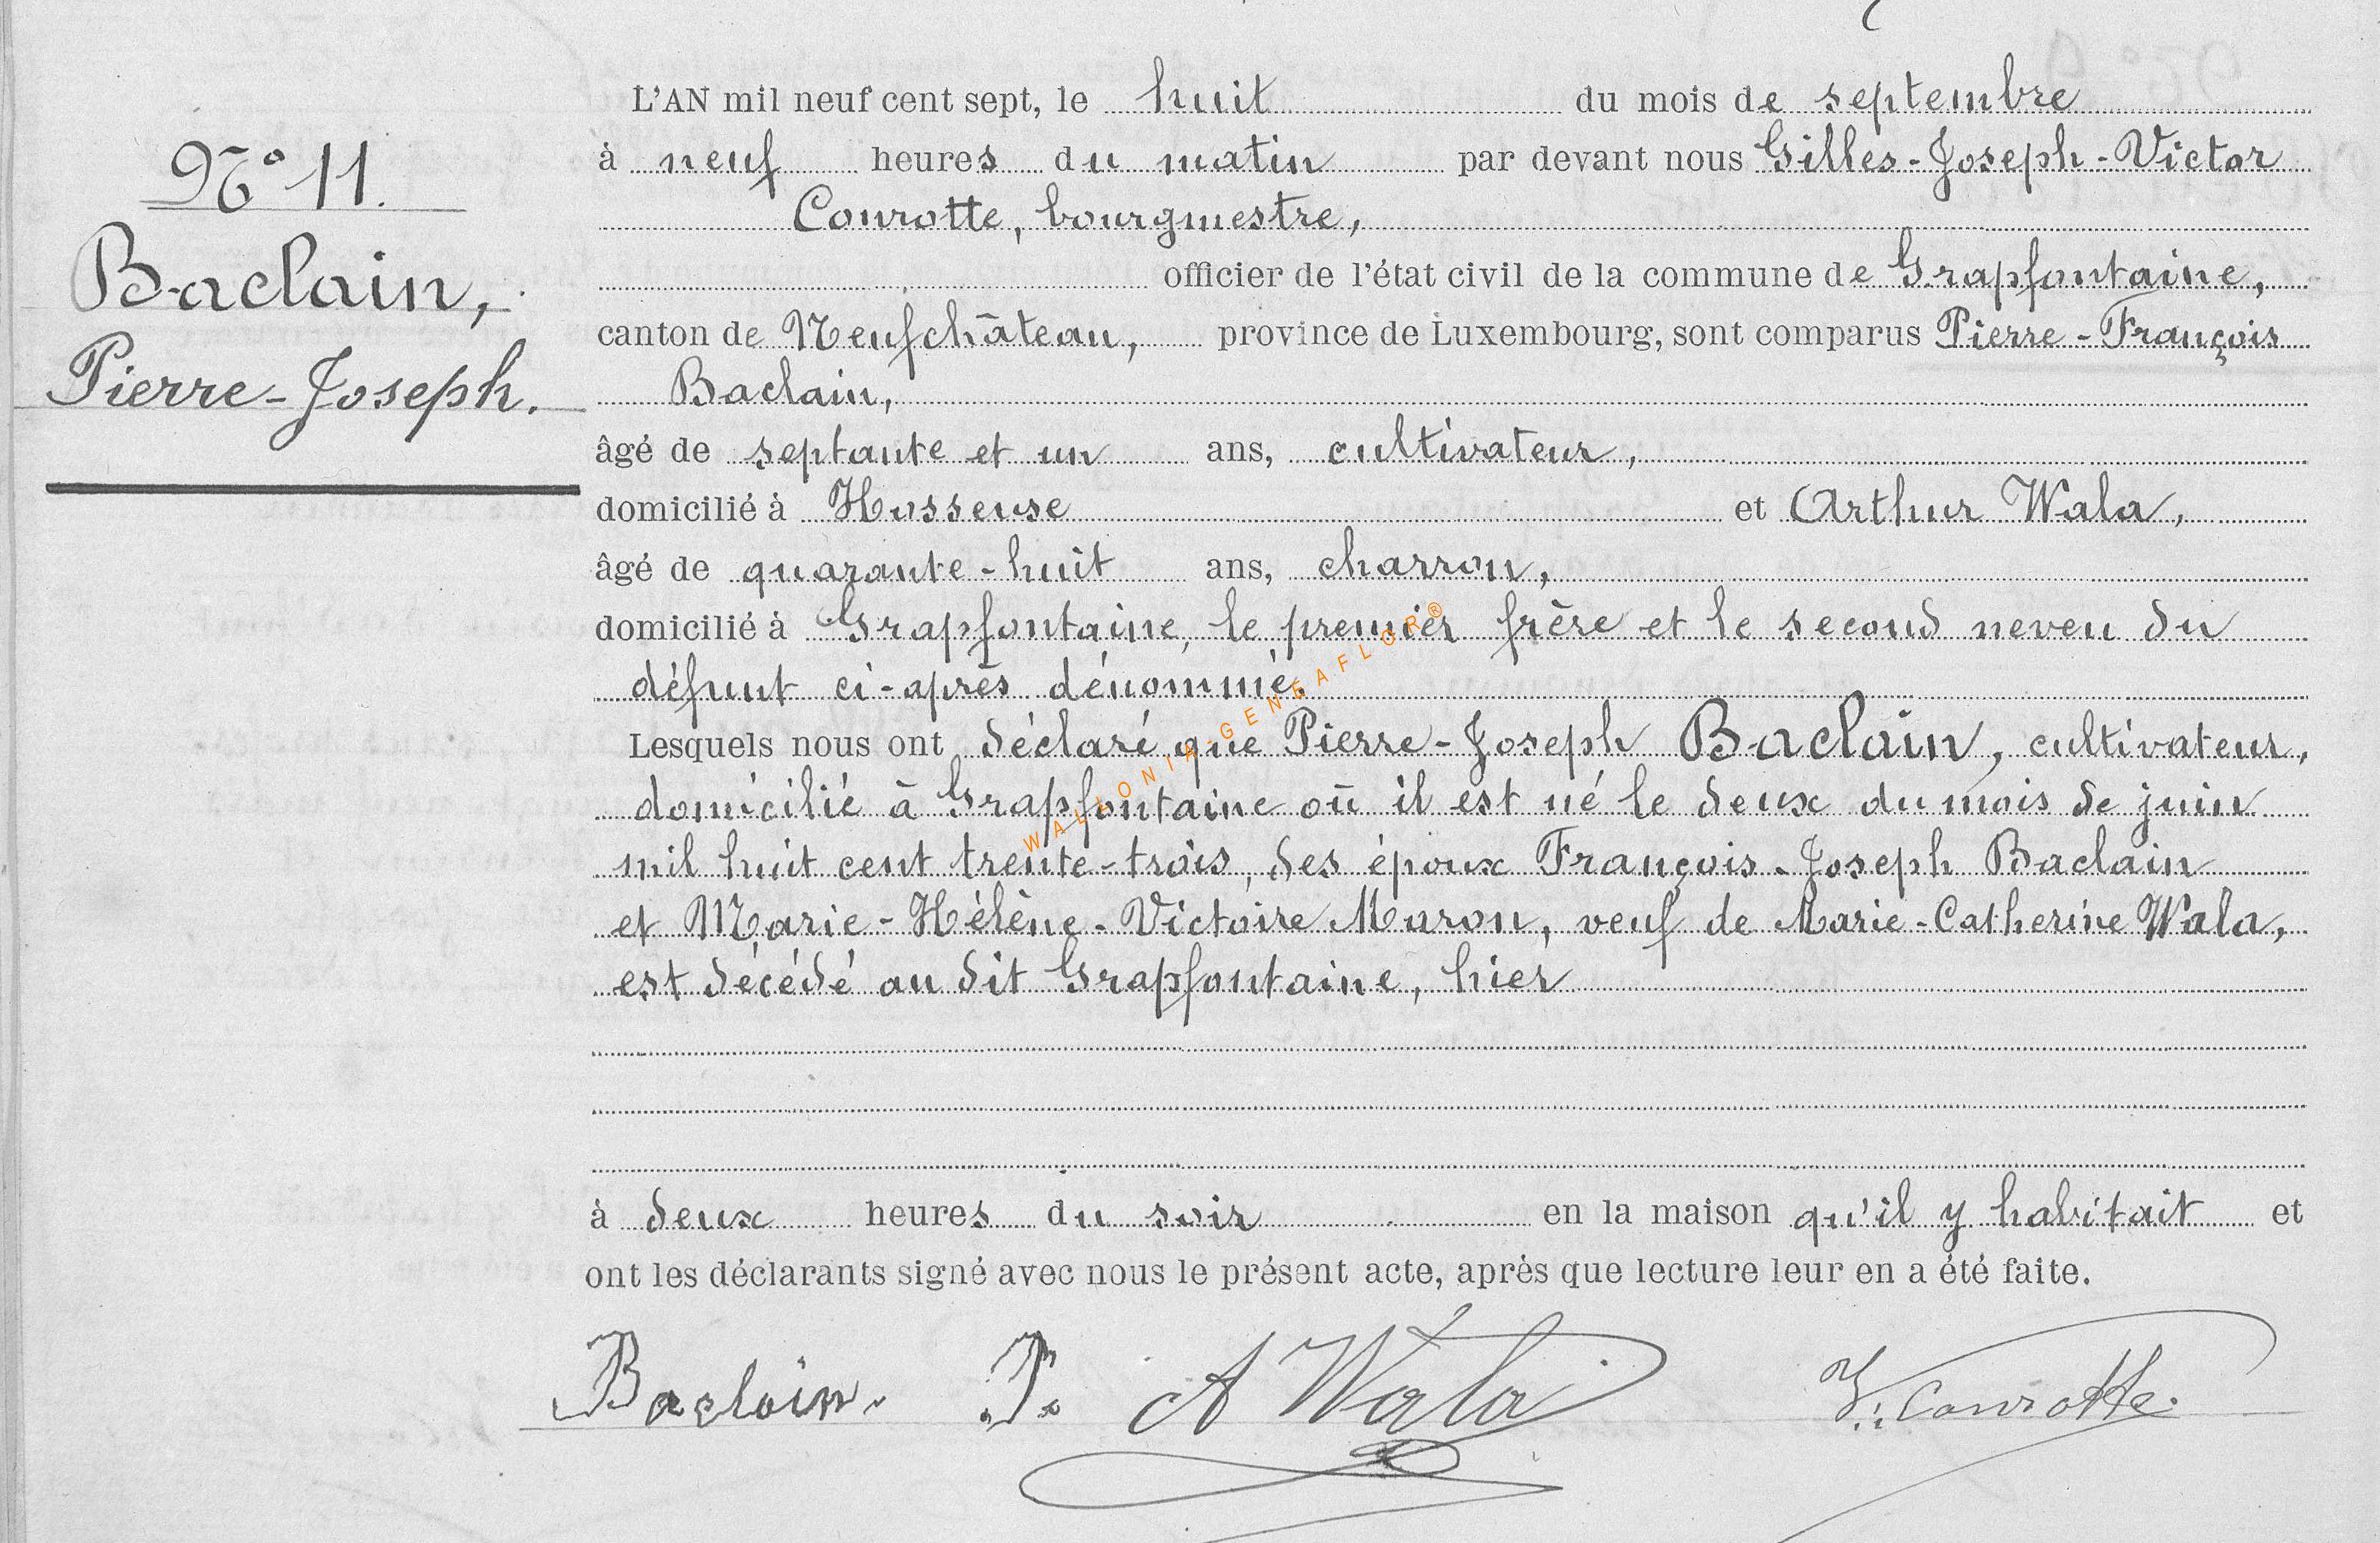 N° 11.
Baclain,
Pierre-Joseph.
L'AN mil neuf cent sept, le huit du mois de septembre
à neuf heures du matin par devant nous Gilles-Joseph-Victor
Conrotte, bourgmestre,
officier de l'état civil de la commune de Grapfontaine,
canton de Neufchâteau, province de Luxembourg, sont comparus Pierre-François
Baclain,
âgé de septante et un ans, cultivateur,
domicilié à Hosseuse et Arthur Wala,
âgé de quarante-huit ans, charron,
domicilié à Grapfontaine, le premier frère et le second neveu du
défunt ci-après dénommé.
Lesquels nous ont déclaré que Pierre-Joseph Baclain, cultivateur,
domicilié à Grapfontaine où il est né le deux du mois de juin
mil huit cent trente-trois, des époux François-Joseph Baclain
et Marie-Hélène-Victoire Maron, veuf de Marie-Catherine Wala,
est décédé au dit Grapfontaine, hier
à deux heures du soir en la maison qu'il y habitait et
ont les déclarants signé avec nous le présent acte, après que lecture leur en a été faite.
Baclain. P. A Wala V. Conrotte.
WALLONIA-GENEAFLOR®